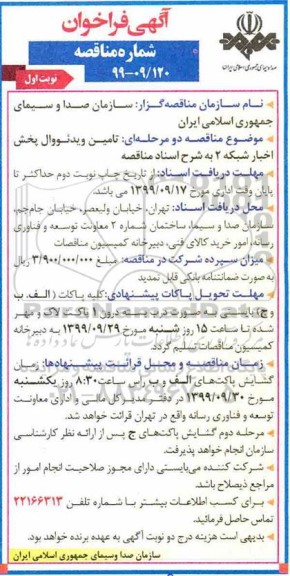 آگهی فراخوان
شماره مناقصه
۹۹-۰۹/۱۲۰
نوبت اول
صدا و سیمای جمهوری اسلامی ایران
نام سازمان مناقصه‌گزار: سازمان صدا و سیمای
جمهوری اسلامی ایران
موضوع مناقصه دو مرحله‌ای: تامین ویدئووال پخش
اخبار شبکه ۲ به شرح اسناد مناقصه
مهلت دریافت اسناد: از تاریخ چاپ نوبت دوم حداکثر تا
پایان وقت اداری مورخ ۱۳۹۹/۰۹/۱۷ می باشد.
محل دریافت اسناد: تهران، خیابان ولیعصر، خیابان جام‌جم،
سازمان صدا و سیما، ساختمان شماره ۲ معاونت توسعه و فناوری
رسانه، امور خرید کالای فنی، دبیرخانه کمیسیون مناقصات
میزان سپرده شرکت در مناقصه: مبلغ ۳/۹۰۰/۰۰۰/۰۰۰ ریال
به صورت ضمانتنامه بانکی قابل تمدید
مهلت تحویل پاکات پیشنهادی: کلیه پاکات (الف، ب
و ج) بایستی به صورت دربسته درون ۱ پاکت، لاک و مهر
شده تا ساعت ۱۵ روز شنبه مورخ ۱۳۹۹/۰۹/۲۹ به دبیرخانه
کمیسیون مناقصات تسلیم گردد.
زمان مناقصه و محل قرائت پیشنهادها: زمان
گشایش پاکت‌های الف و ب راس ساعت ۸:۳۰ روز یکشنبه
مورخ ۱۳۹۹/۰۹/۳۰ در دفتر مدیرکل فنی و اداری معاونت
توسعه و فناوری رسانه واقع در تهران قرائت خواهد شد.
مرحله دوم گشایش پاکت‌های ج پس از ارائه نظر کارشناسی
سازمان انجام خواهد پذیرفت.
شرکت کننده می‌بایستی دارای مجوز صلاحیت انجام امور از
مراجع ذیصلاح باشد.
برای کسب اطلاعات بیشتر با شماره تلفن ۲۲۱۶۶۳۱۳
تماس حاصل فرمائید.
بدیهی است هزینه درج دو نوبت آگهی به عهده برنده خواهد بود.
سازمان صدا وسیمای جمهوری اسلامی ایران